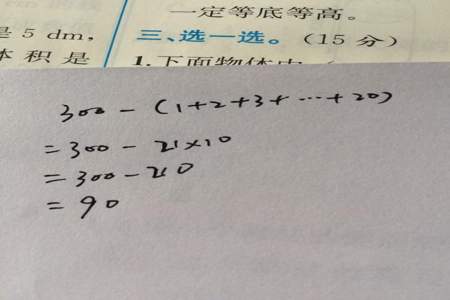 一定等底等高。
是5 dm,
三、选一选。(15 分)
体积是
1.下面物体中
300 - (1+2+3+…+20)
=300 - 21×10
=300-210
=90